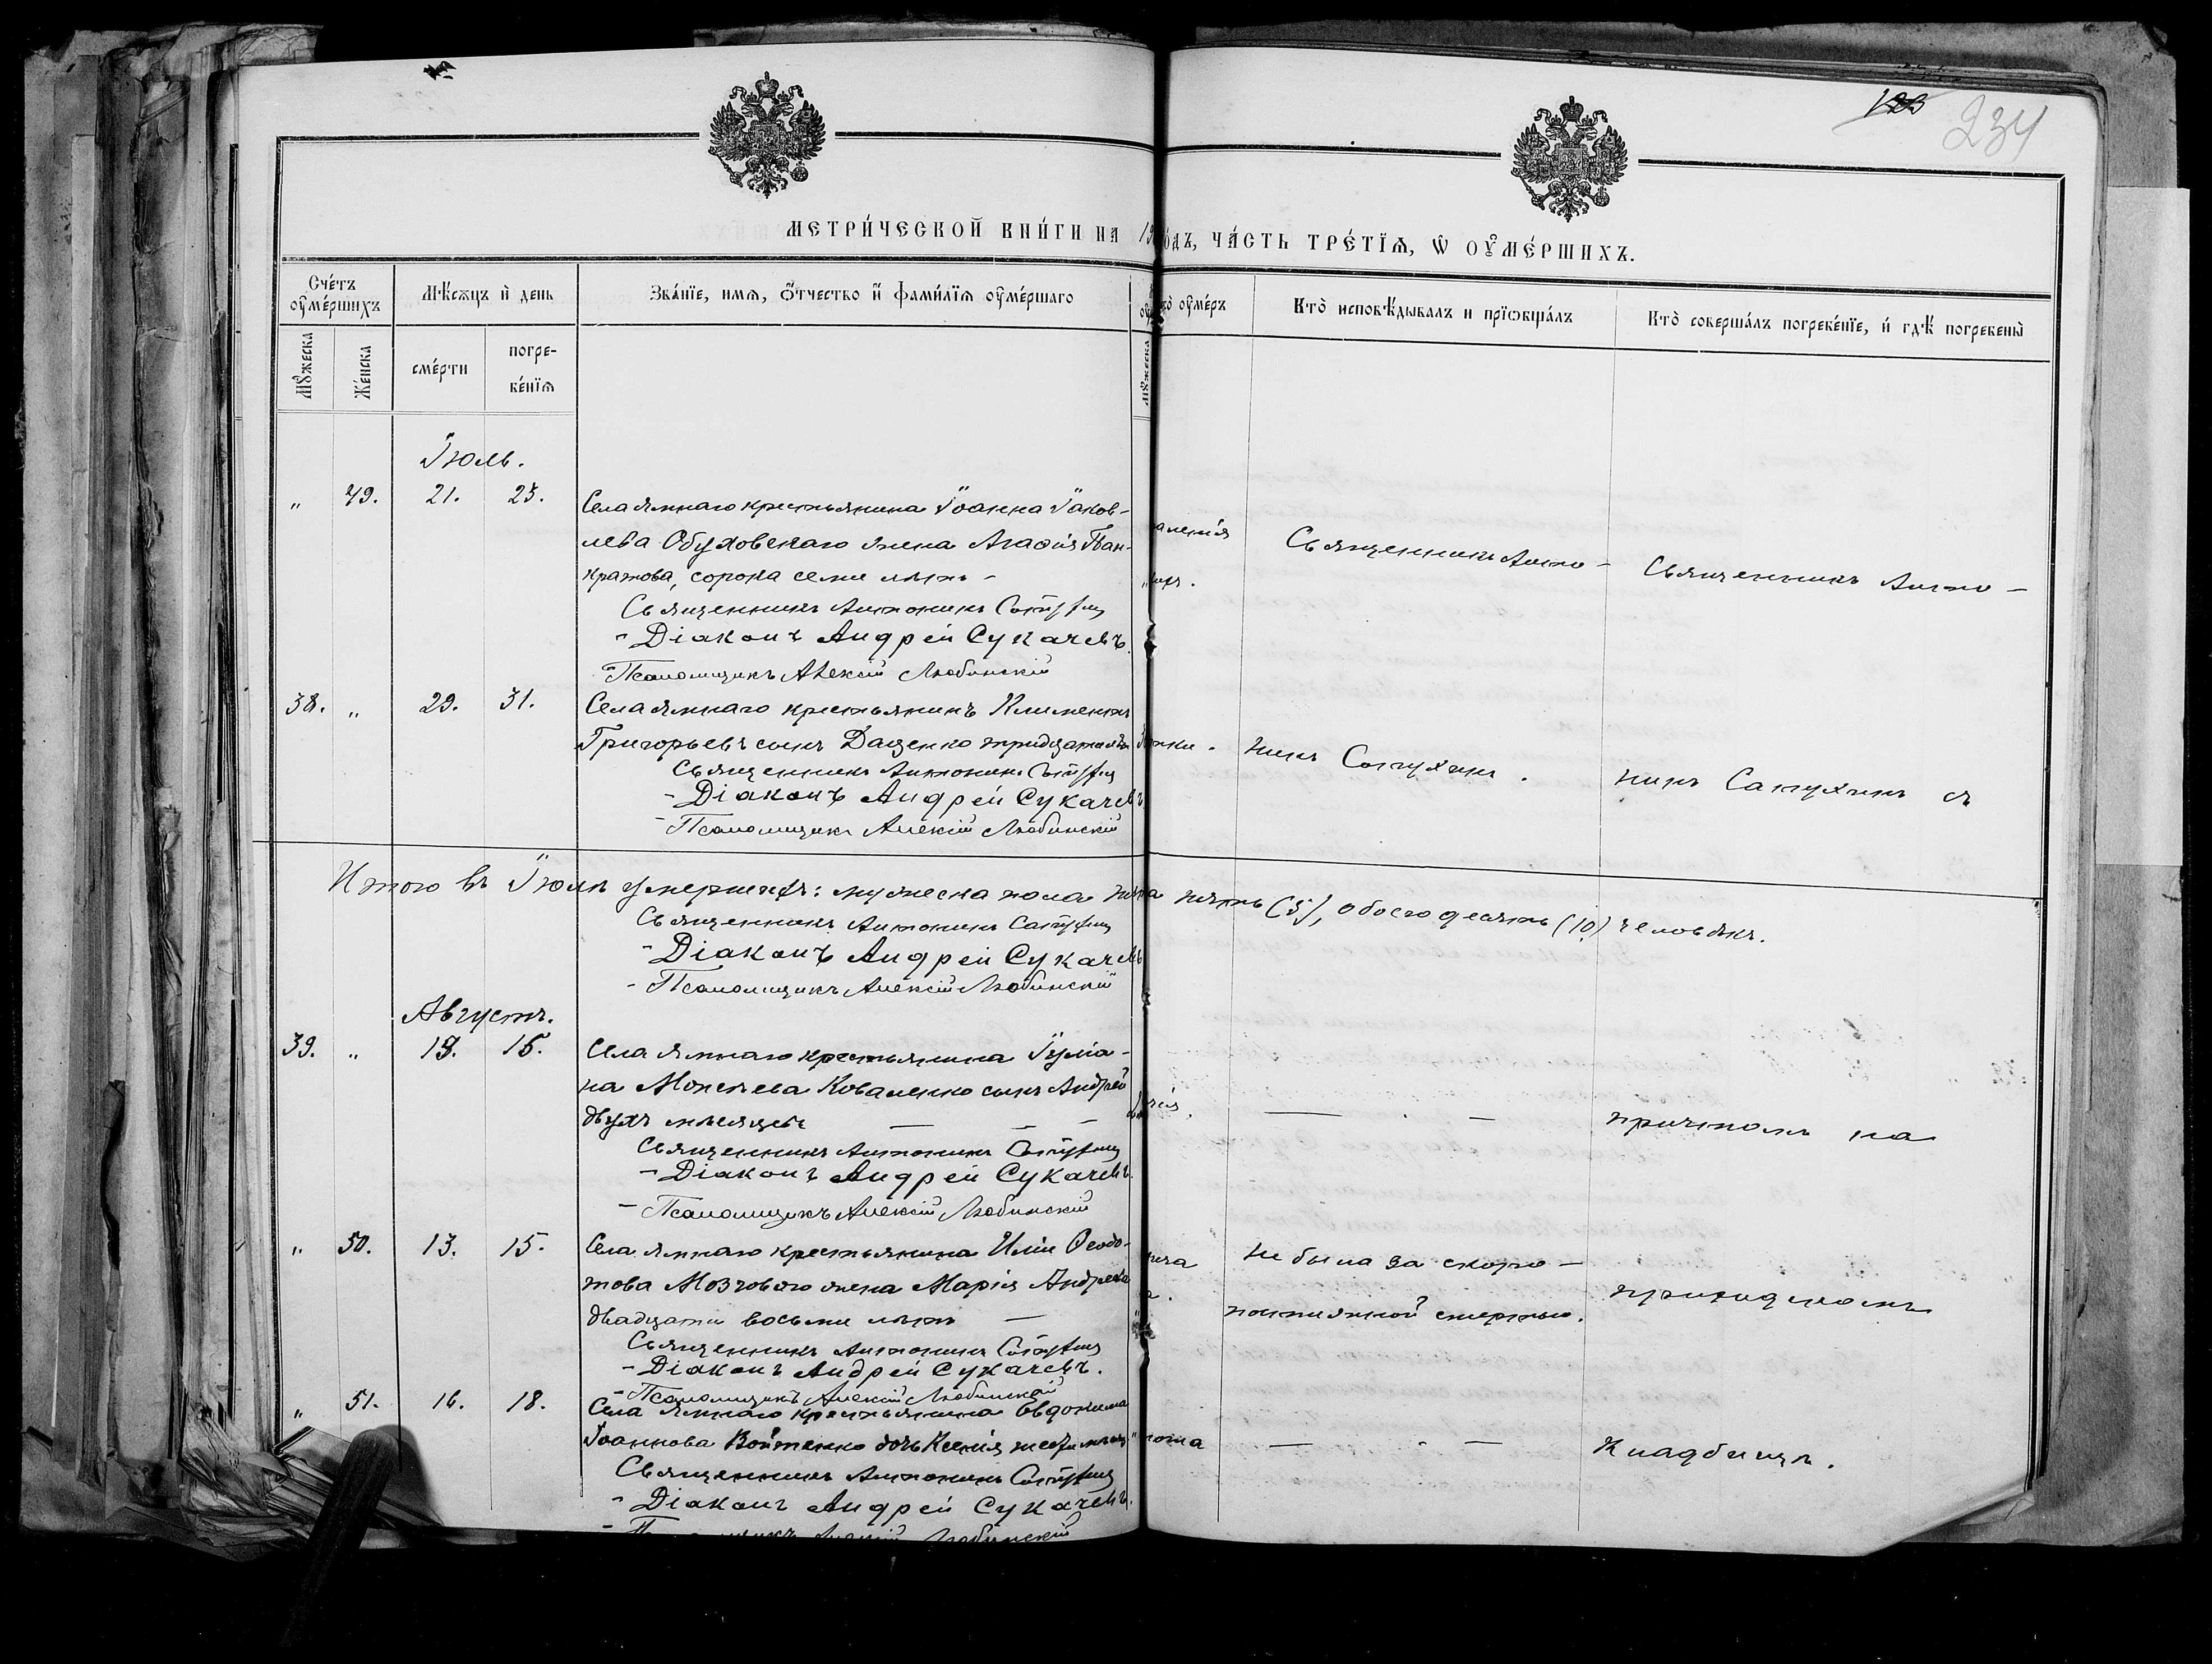 123
234
МЕТРИ́ЧЕСКОЙ КНИ́ГИ НА 19
ОДЪ, ЧА́СТЬ ТРЕ́ТЇѦ, Ѡ ОУМЕ́РШИХЪ.
Сче́тъ оуме́ршихъ
Мѣ́сѧцъ и҆ день
Зва́нїе, имѧ, ѻ҆́тчество и҆ фами́лїѧ оуме́ршаго
оуме́ръ
Кто̀ исповѣ́дывалъ и прїѡбща́лъ
Кто̀ соверша́лъ погребе́нїе, и҆ гдѣ̀ погребены̀
Мꙋ́жеска
Же́нска
сме́рти
погре-
бе́нїѧ
Мꙋжеска
Іюль.
" 49. 21. 23.
Села Ямнаго крестьянина Іоанна Іаков-
лева Обуховскаго жена Агафія Пан-
кратова, сорока семи лѣтъ -
Священникъ Антонинъ
- Діаконъ Андрей Сукачевъ.
Псаломщикъ Алексій Любинскій
аленія
Священникъ Анто-
Священникъ Анто-
38. " 29. 31.
Села Ямнаго крестьянинъ Климентъ
Григорьевъ сынъ Даценко тридцати лѣтъ
Священникъ Антонинъ
- Діаконъ Андрей Сукачевъ
- Псаломщикъ Алексій Любинскій
нинъ Сапухинъ.
нинъ Сапухинъ съ
Итого въ Іюлѣ умершихъ: мужеска пола
пять (5), обоего десять (10) человѣкъ.
Священникъ Антонинъ
- Діаконъ Андрей Сукачевъ
- Псаломщикъ Алексій Любинскій
Августъ.
39. " 13. 15.
Села Ямнаго крестьянина Іуліа-
на Моисеева Коваленко сынъ Андрей
двухъ мѣсяцевъ — — —
Священникъ Антонинъ
- Діаконъ Андрей Сукачевъ.
- Псаломщикъ Алексій Любинскій
— . —
причтомъ на
" 50. 13. 15.
Села Ямнаго крестьянина Иліи Ѳеодо-
това Мозгового жена Марія Андреева
двадцати восьми лѣтъ —
Священникъ Антонинъ
- Діаконъ Андрей Сукачевъ.
- Псаломщикъ Алексій Любинскій
не была за скоро-
постижной смертью.
приходскомъ
" 51. 16. 18.
Села Ямнаго крестьянина Евдокима
Іоаннова Войтенко дочь Ксенія
Священникъ Антонинъ
- Діаконъ Андрей Сукачевъ.
- Псаломщикъ Алексій Любинскій
— . —
кладбищѣ.